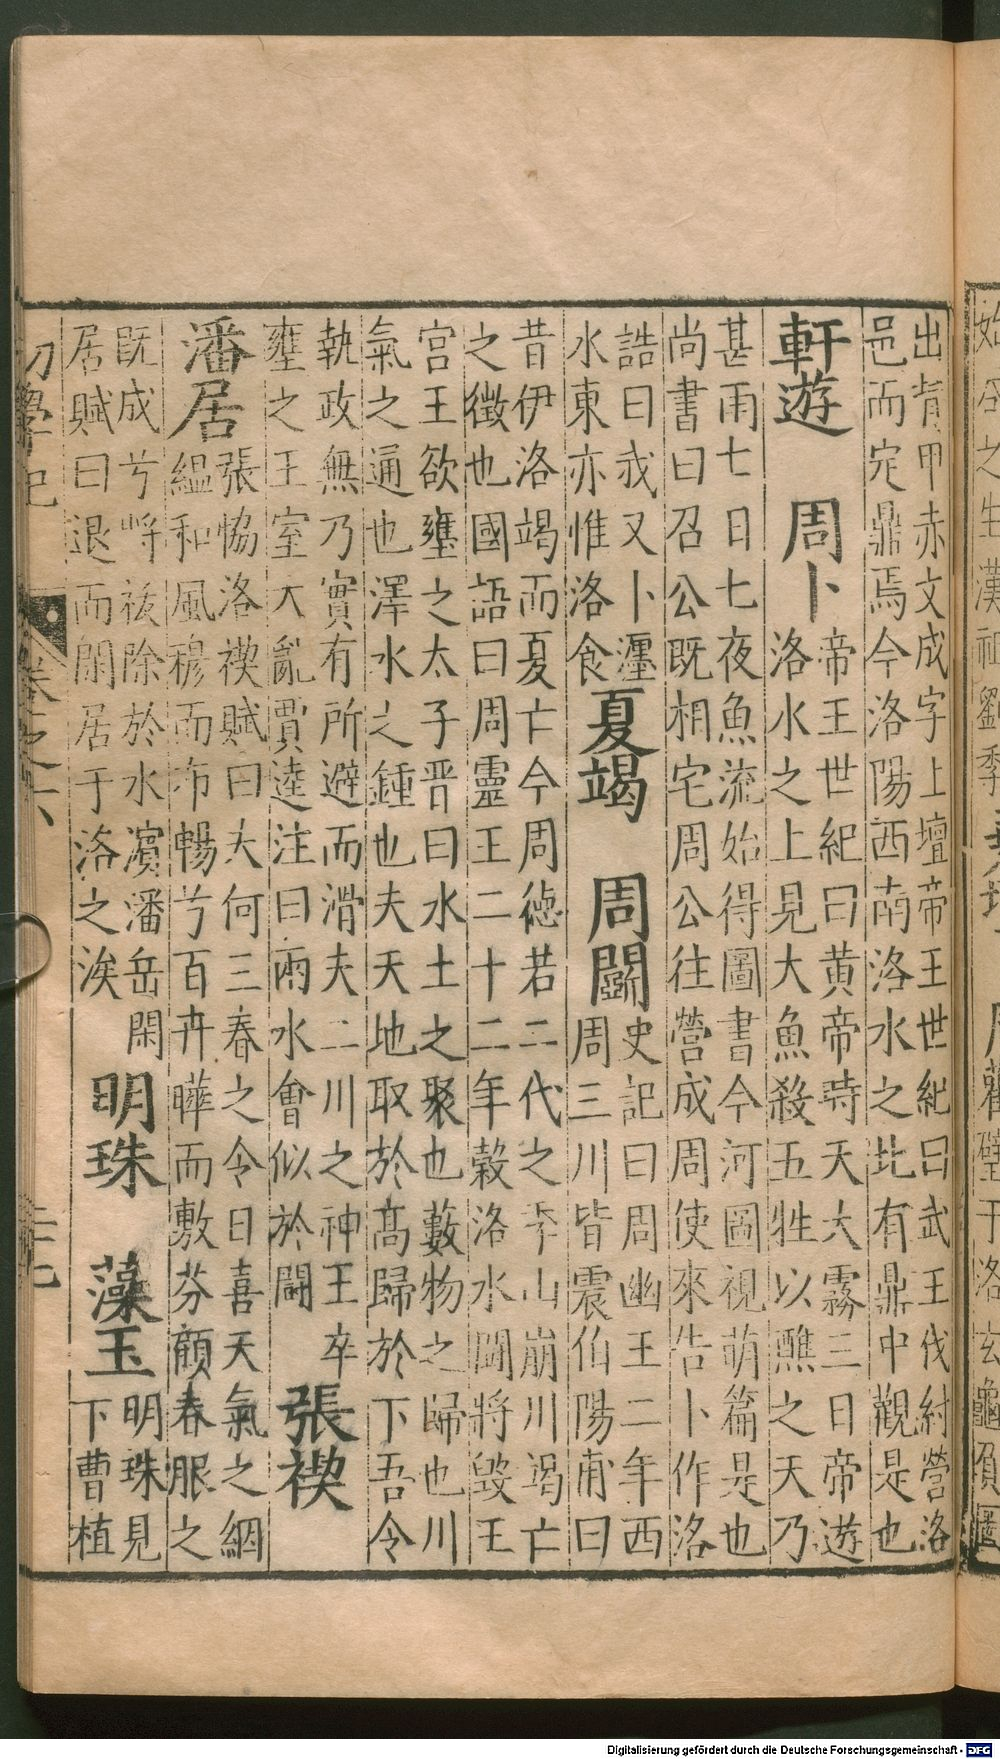 出背甲赤文成字上壇帝王世紀曰武王伐紂營洛
邑而定鼎焉今洛陽西南洛水之北有鼎中觀是也
軒遊 周卜
帝王世紀曰黃帝時天大霧三日帝遊
洛水之上見大魚殺五牲以醮之天乃
甚雨七日七夜魚流始得圖書今河圖視萌篇是也
尚書曰召公既相宅周公往營成周使來告卜作洛
誥曰我又卜瀍
水東亦惟洛食
夏竭 周鬭
史記曰周幽王二年西
周三川皆震伯陽甫曰
昔伊洛竭而夏亡今周德若二代之季山崩川竭亡
之徵也國語曰周靈王二十二年穀洛水鬭將毀王
宮王欲壅之太子晉曰水土之聚也藪物之歸也川
氣之通也澤水之鍾也夫天地取於高歸於下吾今
執政無乃實有所避而滑夫二川之神王卒
壅之王室大亂賈逵注曰兩水會似於鬭
張禊
潘居
張協洛禊賦曰夫何三春之令日喜天氣之絪
縕和風穆而布暢兮百卉曄而敷芬顧春服之
既成兮將祓除於水濱潘岳閑
居賦曰退而閑居于洛之涘
明珠 藻玉
明珠見
下曹植
初學記
卷之六
二十七
Digitalisierung gefördert durch die Deutsche Forschungsgemeinschaft - DFG